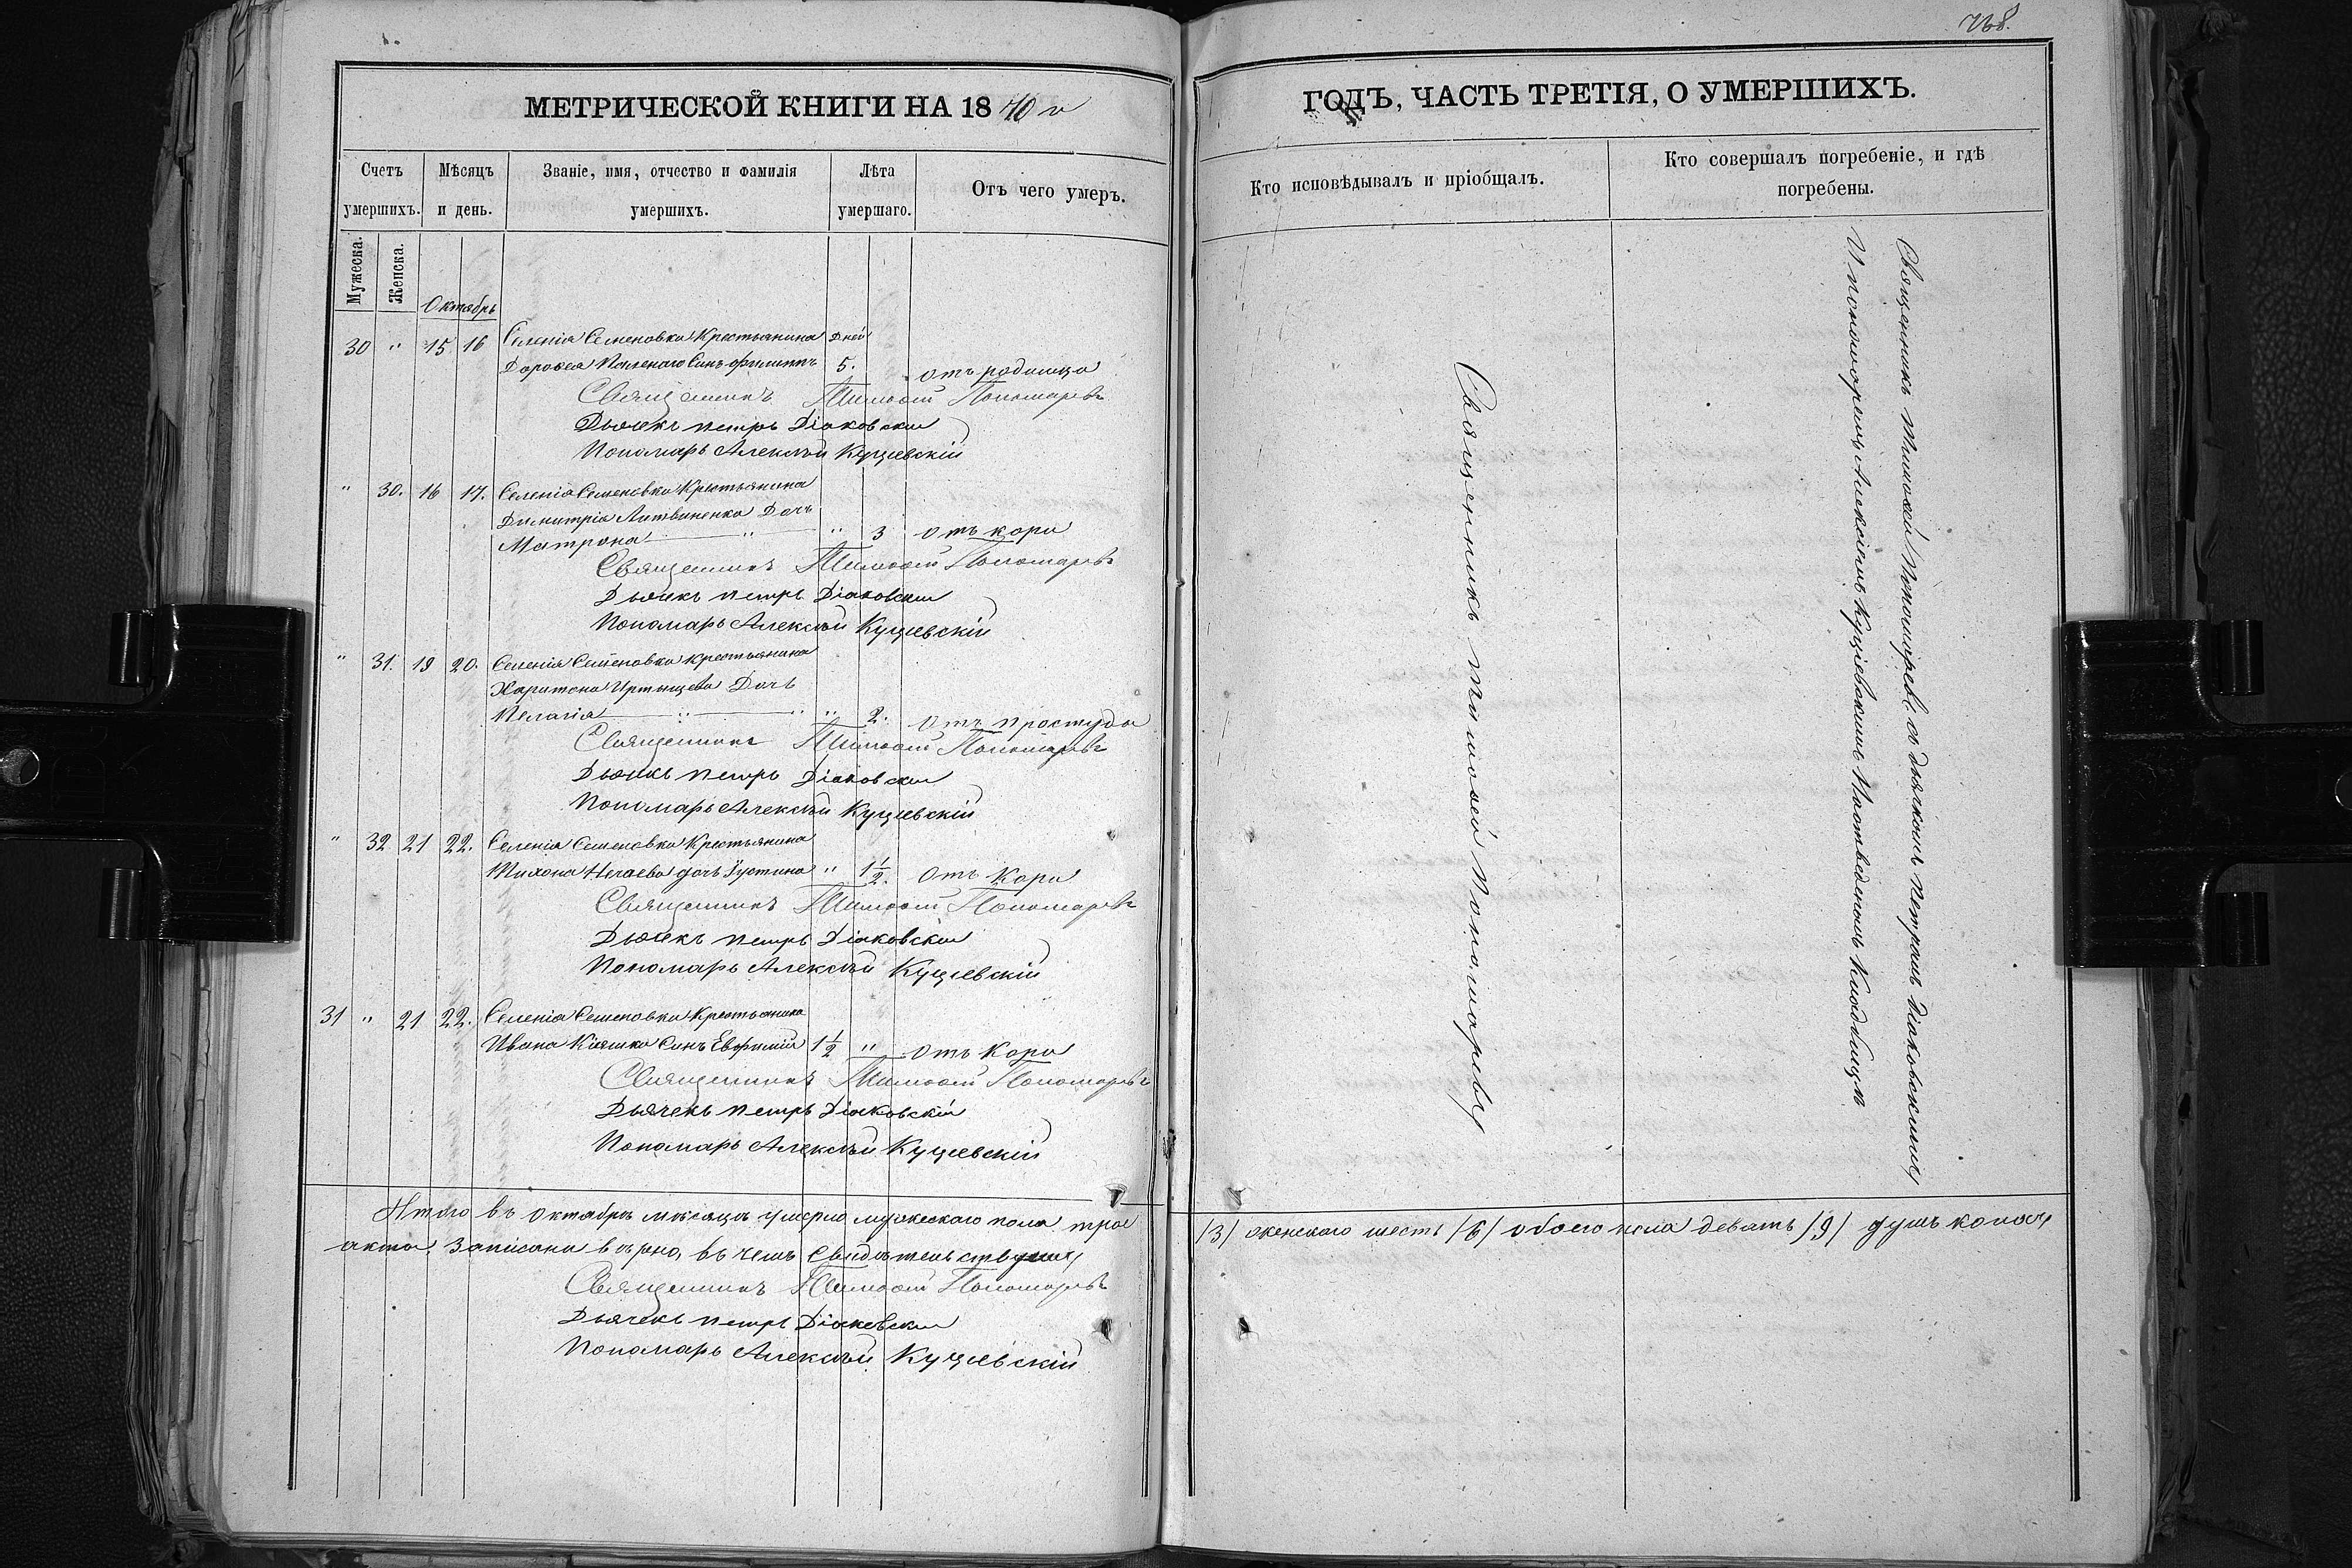 768.
МЕТРИЧЕСКОЙ КНИГИ НА 1870 й
ГОДЪ, ЧАСТЬ ТРЕТІЯ, О УМЕРШИХЪ.
Счетъ умершихъ.
Мѣсяцъ и день.
Званіе, имя, отчество и фамилія умершихъ.
Лѣта умершаго.
Отъ чего умеръ.
Кто исповѣдывалъ и пріобщалъ.
Кто совершалъ погребеніе, и гдѣ погребены.
Мужеска.
Женска.
Октябрь
30 " 15 16 Селенія Семеновки Крестьянина Дней
Дорофея Сынъ Филиппъ 5. отъ родимца
Священникъ Тимофей Пономаревъ
Дьячекъ Петръ Діаковскій
Пономарь Алексѣй Кущевскій
" 30. 16 17. Селенія Семеновки Крестьянина
Димитрія Литвиненка Дочь
Матрона " " 3 отъ кори
Священникъ Тимофей Пономаревъ
Дьячекъ Петръ Діаковскій
Пономарь Алексѣй Кущевскій
" 31. 19 20. Селенія Семеновки крестьянина
Харитона Иртыщева Дочь
Пелагія " " " 2. Отъ простуды
Священникъ Тимофей Пономаревъ
Дьячекъ Петръ Діаковскій
Пономарь Алексѣй Кущевскій
" 32 21 22. Селенія Семеновки Крестьянина
Тихона Нечаева дочь Іустина " 1½. Отъ Кори
Священникъ Тимофей Пономаревъ
Дьячекъ Петръ Діаковскій
Пономарь Алексѣй Кущевскій
31 " 21 22. Селенія Семеновки Крестьянина
Ивана Кіяшка Сынъ Евфимій 1½ " Отъ Кори
Священникъ Тимофей Пономаревъ
Дьячекъ Петръ Діаковскій
Пономарь Алексѣй Кущевскій
Священникъ Тимофей Пономаревъ
Священникъ Тимофей Пономаревъ, съ дьячкомъ Петромъ Діаковскимъ
И пономаремъ Алексіемъ Кущевскимъ На отведеномъ Кладбищѣ
Итого въ октябрѣ мѣсяцѣ умерло мужескаго пола трое /3/ женскаго шесть /6/ обоего пола девять /9/ душъ
акты Записаны вѣрно, въ чемъ Свидѣтельствуемъ
Священникъ Тимофей Пономаревъ
Дьячекъ Петръ Діаковскій
Пономарь Алексѣй Кущевскій